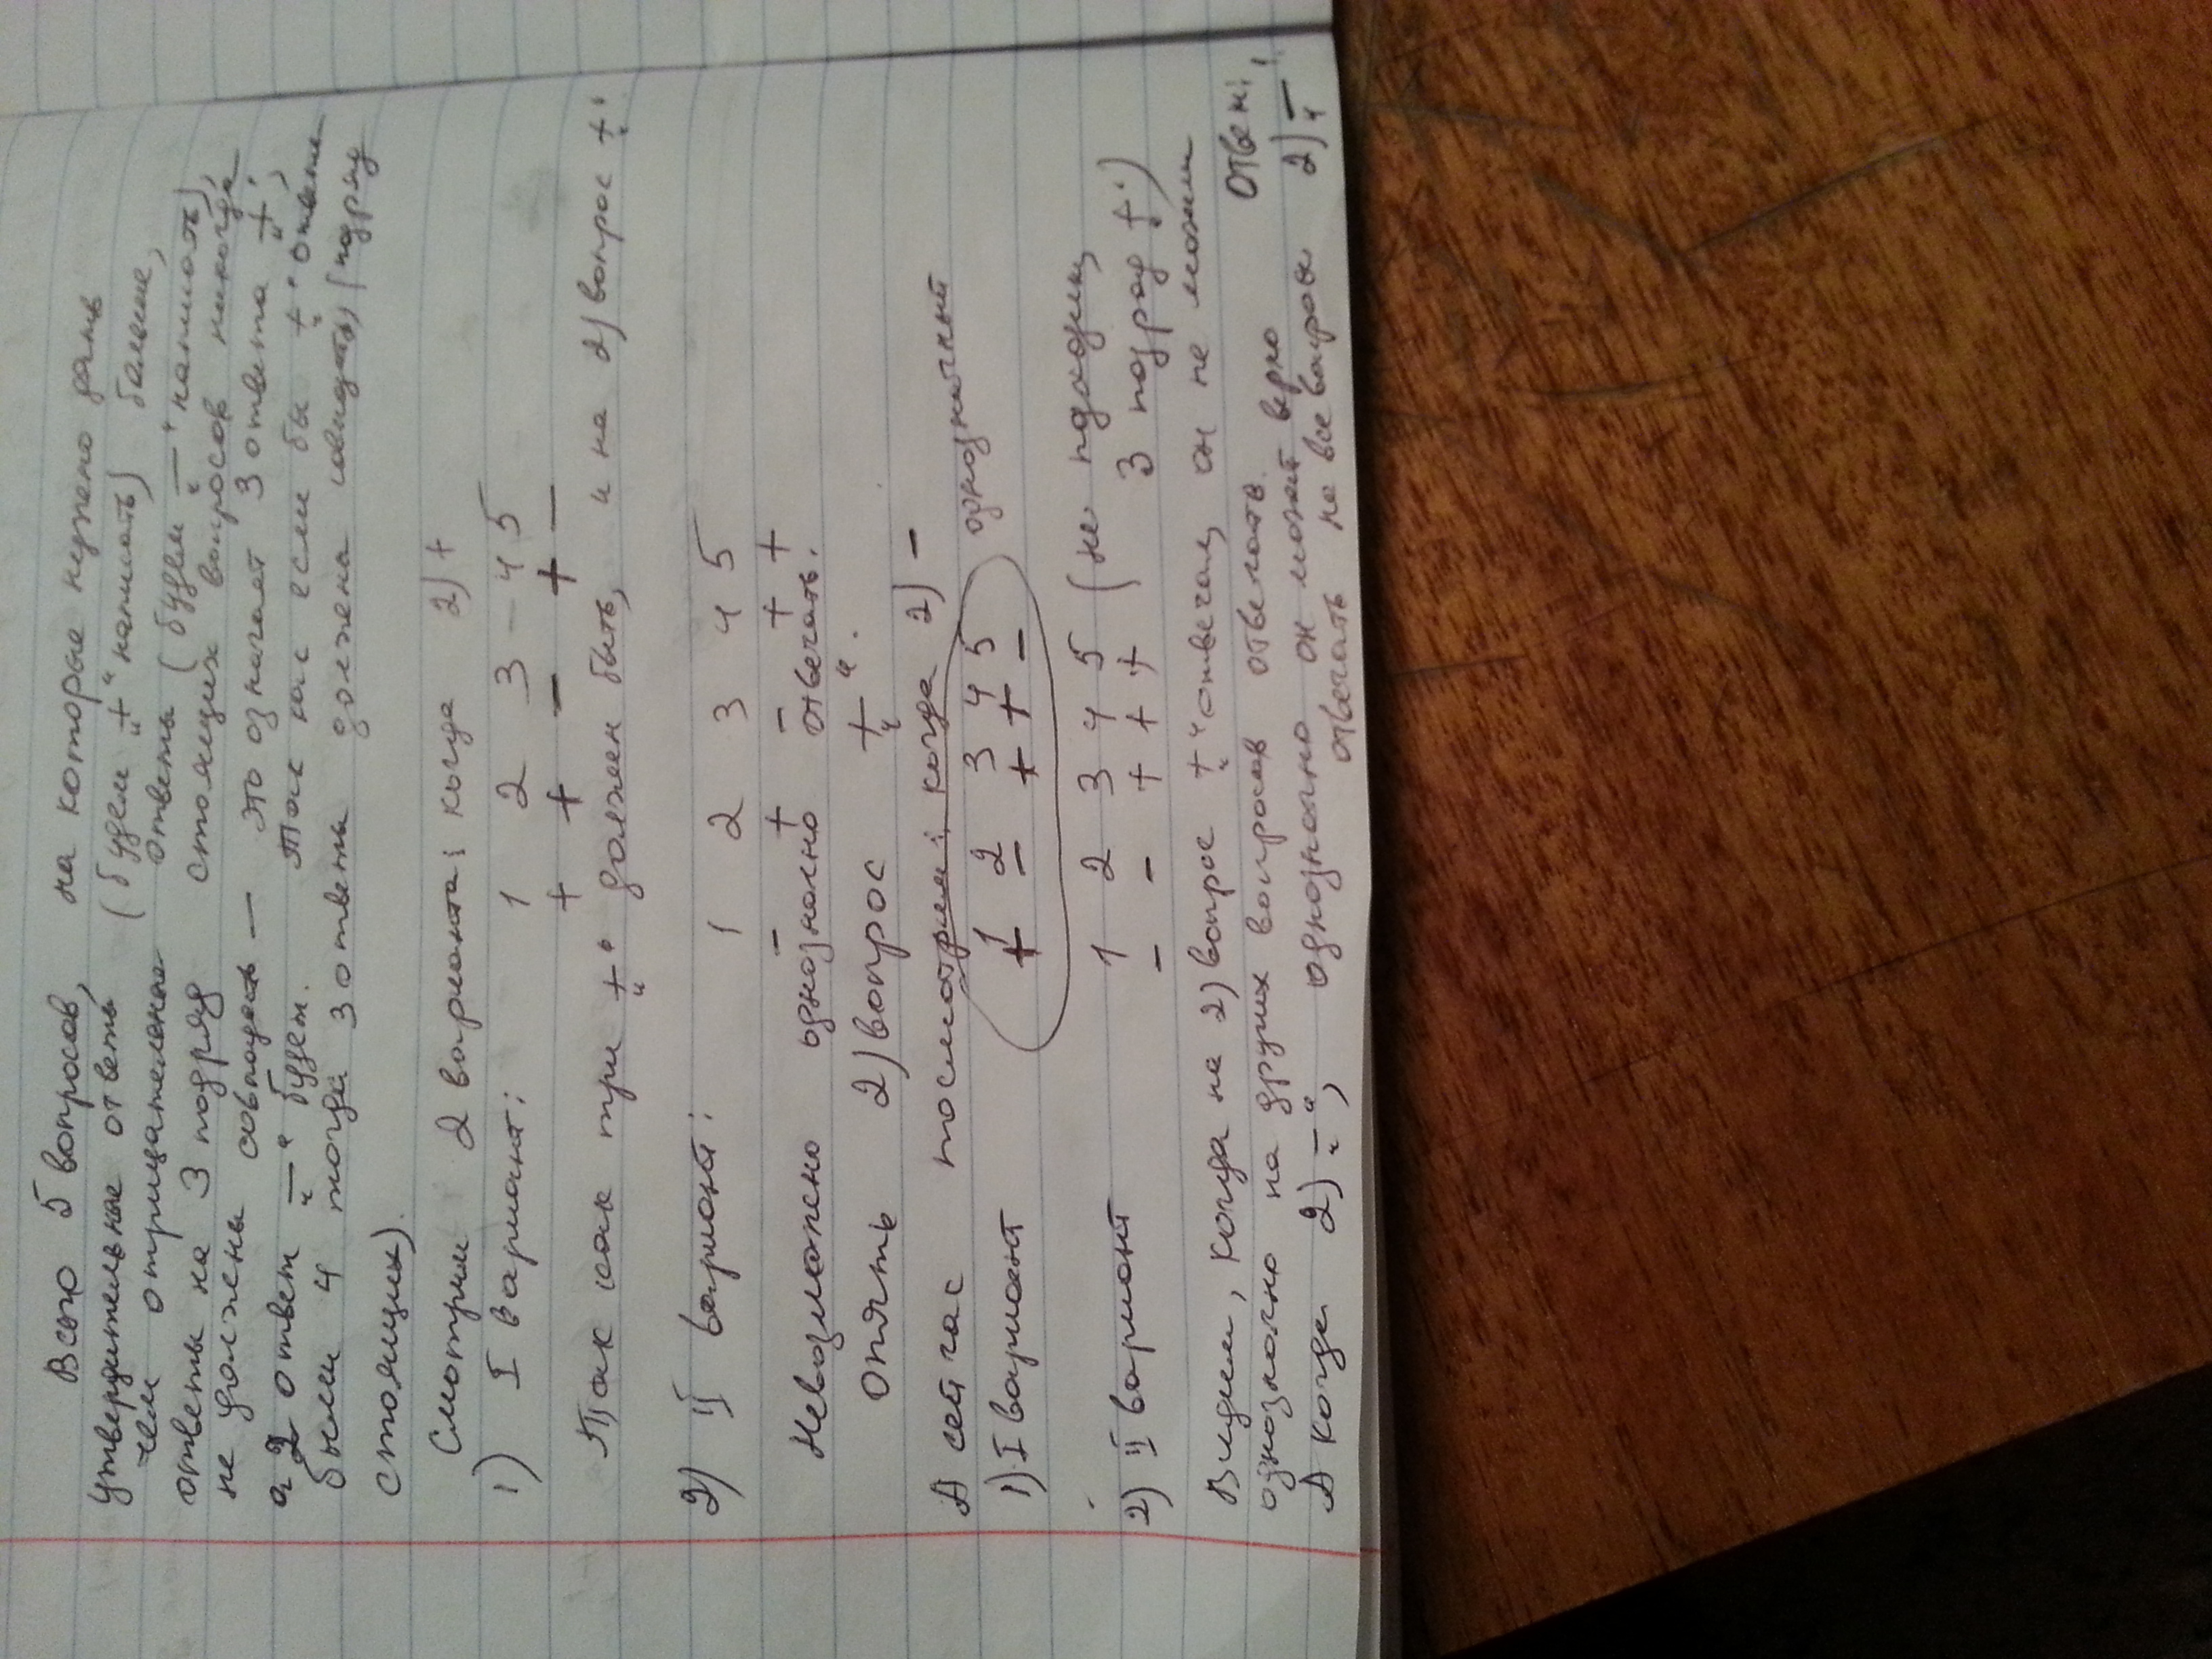 Всего 5 вопросов, на которые нужно дать
утвердительные ответы (будем "+" написать) больше,
чем отрицательные ответы (будем "—" написать),
ответы на 3 подряд стоящих вопросов никогда
не должны совпадать — это означает 3 ответа "+",
а 2 ответ "—" будет. Так как если бы "+" ответов
были 4 тогда 3 ответы должены совпадать (подряд
стоящих).
Смотрим 2 варианта; когда 2) +
1) I вариант; 1 2 3 4 5
+ + — + —
Так как три "+" должен быть, и на 2) вопрос "+"
2) II вариант: 1 2 3 4 5
— + — + +
Невозможно однозначно отвечать.
Опять 2) вопрос "+".
А сейчас посмотрим; когда 2) —
1) I вариант 1 2 3 4 5 однозначный
+ — + + —
2) II вариант 1 2 3 4 5 (не подходит,
— — + + + 3 подряд "+")
Видим, когда на 2) вопрос "+" отвечал, он неможем
однозначно на других вопросов ответать.
А когда 2) "—", однозначно он может верно
отвечать на все вопросы
Ответ:
2) "—"